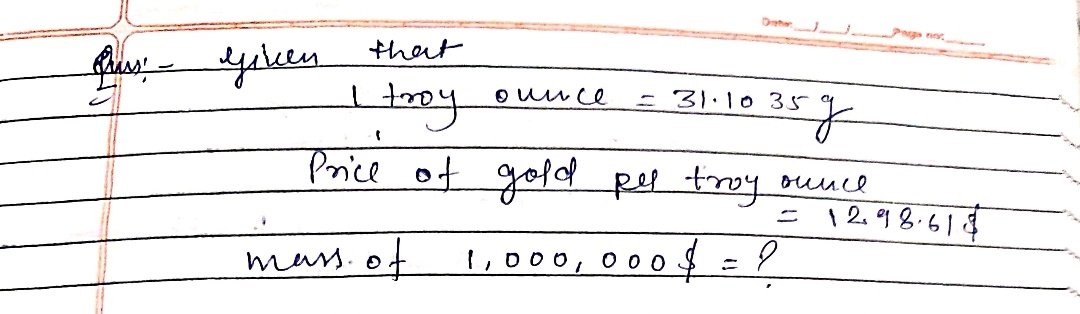 Date: __/__/__ Page no: ____
Ques:- Given that
1 troy ounce = 31.1035 g
Price of gold per troy ounce
= 1298.61 $
mass of 1,000,000 $ = ?